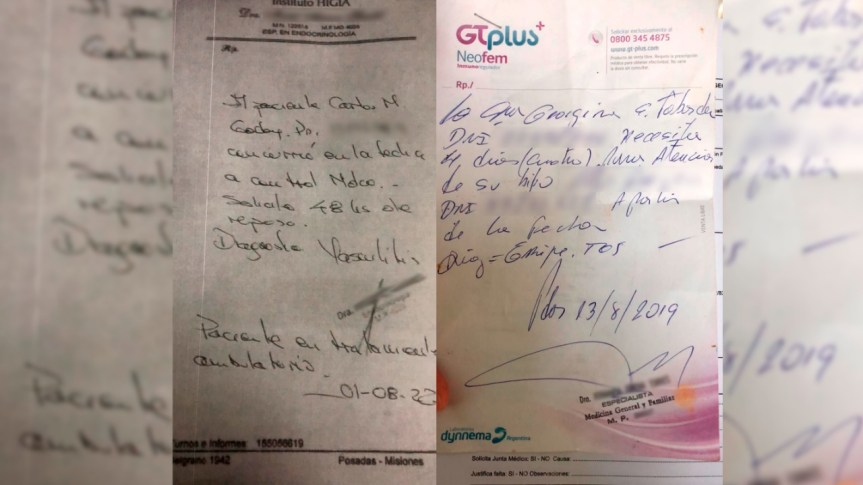 Instituto HIGIA
Dra.
ESP. EN ENDOCRINOLOGÍA
Rp.
El paciente Carlos M
Godoy. Dni.
concurrió en la fecha
a control Médico.-
Solicito 48 hs de
reposo.
Diagnostico Vasculitis
Dra.
Paciente en tratamiento
ambulatorio.
01-08-20
Turnos e Informes: 155066619
Belgrano 1942
Posadas - Misiones
GTplus+
Neofem
Solicitar exclusivamente al
0800 345 4875
www.gt-plus.com
Rp./
La Sra Georgina E.
DNI Necesita
4 dias (cuatro) para Atencion
de su hijo
DNI A partir
de la fecha
Diag = TOS
Pdas 13/8/2019
Dra.
ESPECIALISTA
Medicina General y Familiar
M. P.
Laboratorio
dynnema Argentina
Solicito Junta Médica: SI - NO Causa:
Justifica falta: SI - NO Observaciones: